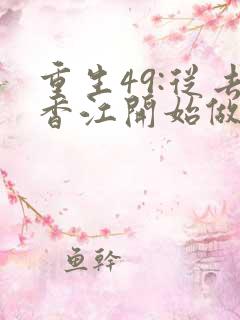 重生49:從去
香江開始做
鱼幹